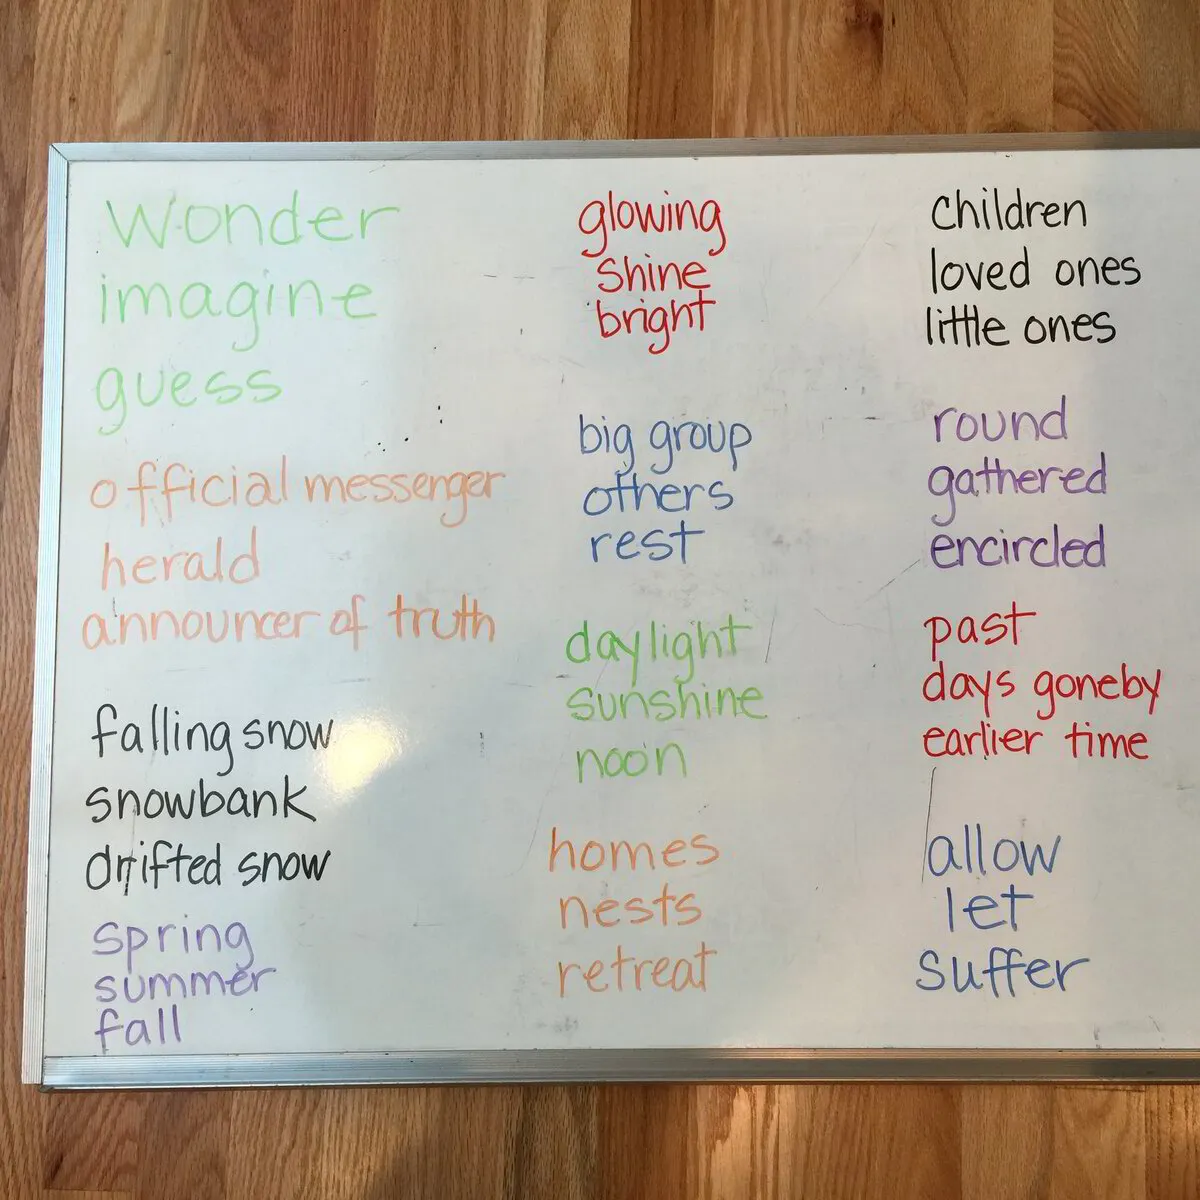 Wonder
imagine
guess
official messenger
herald
announcer of truth
falling snow
snowbank
drifted snow
spring
summer
fall
glowing
shine
bright
big group
others
rest
daylight
sunshine
noon
homes
nests
retreat
children
loved ones
little ones
round
gathered
encircled
past
days goneby
earlier time
allow
let
suffer